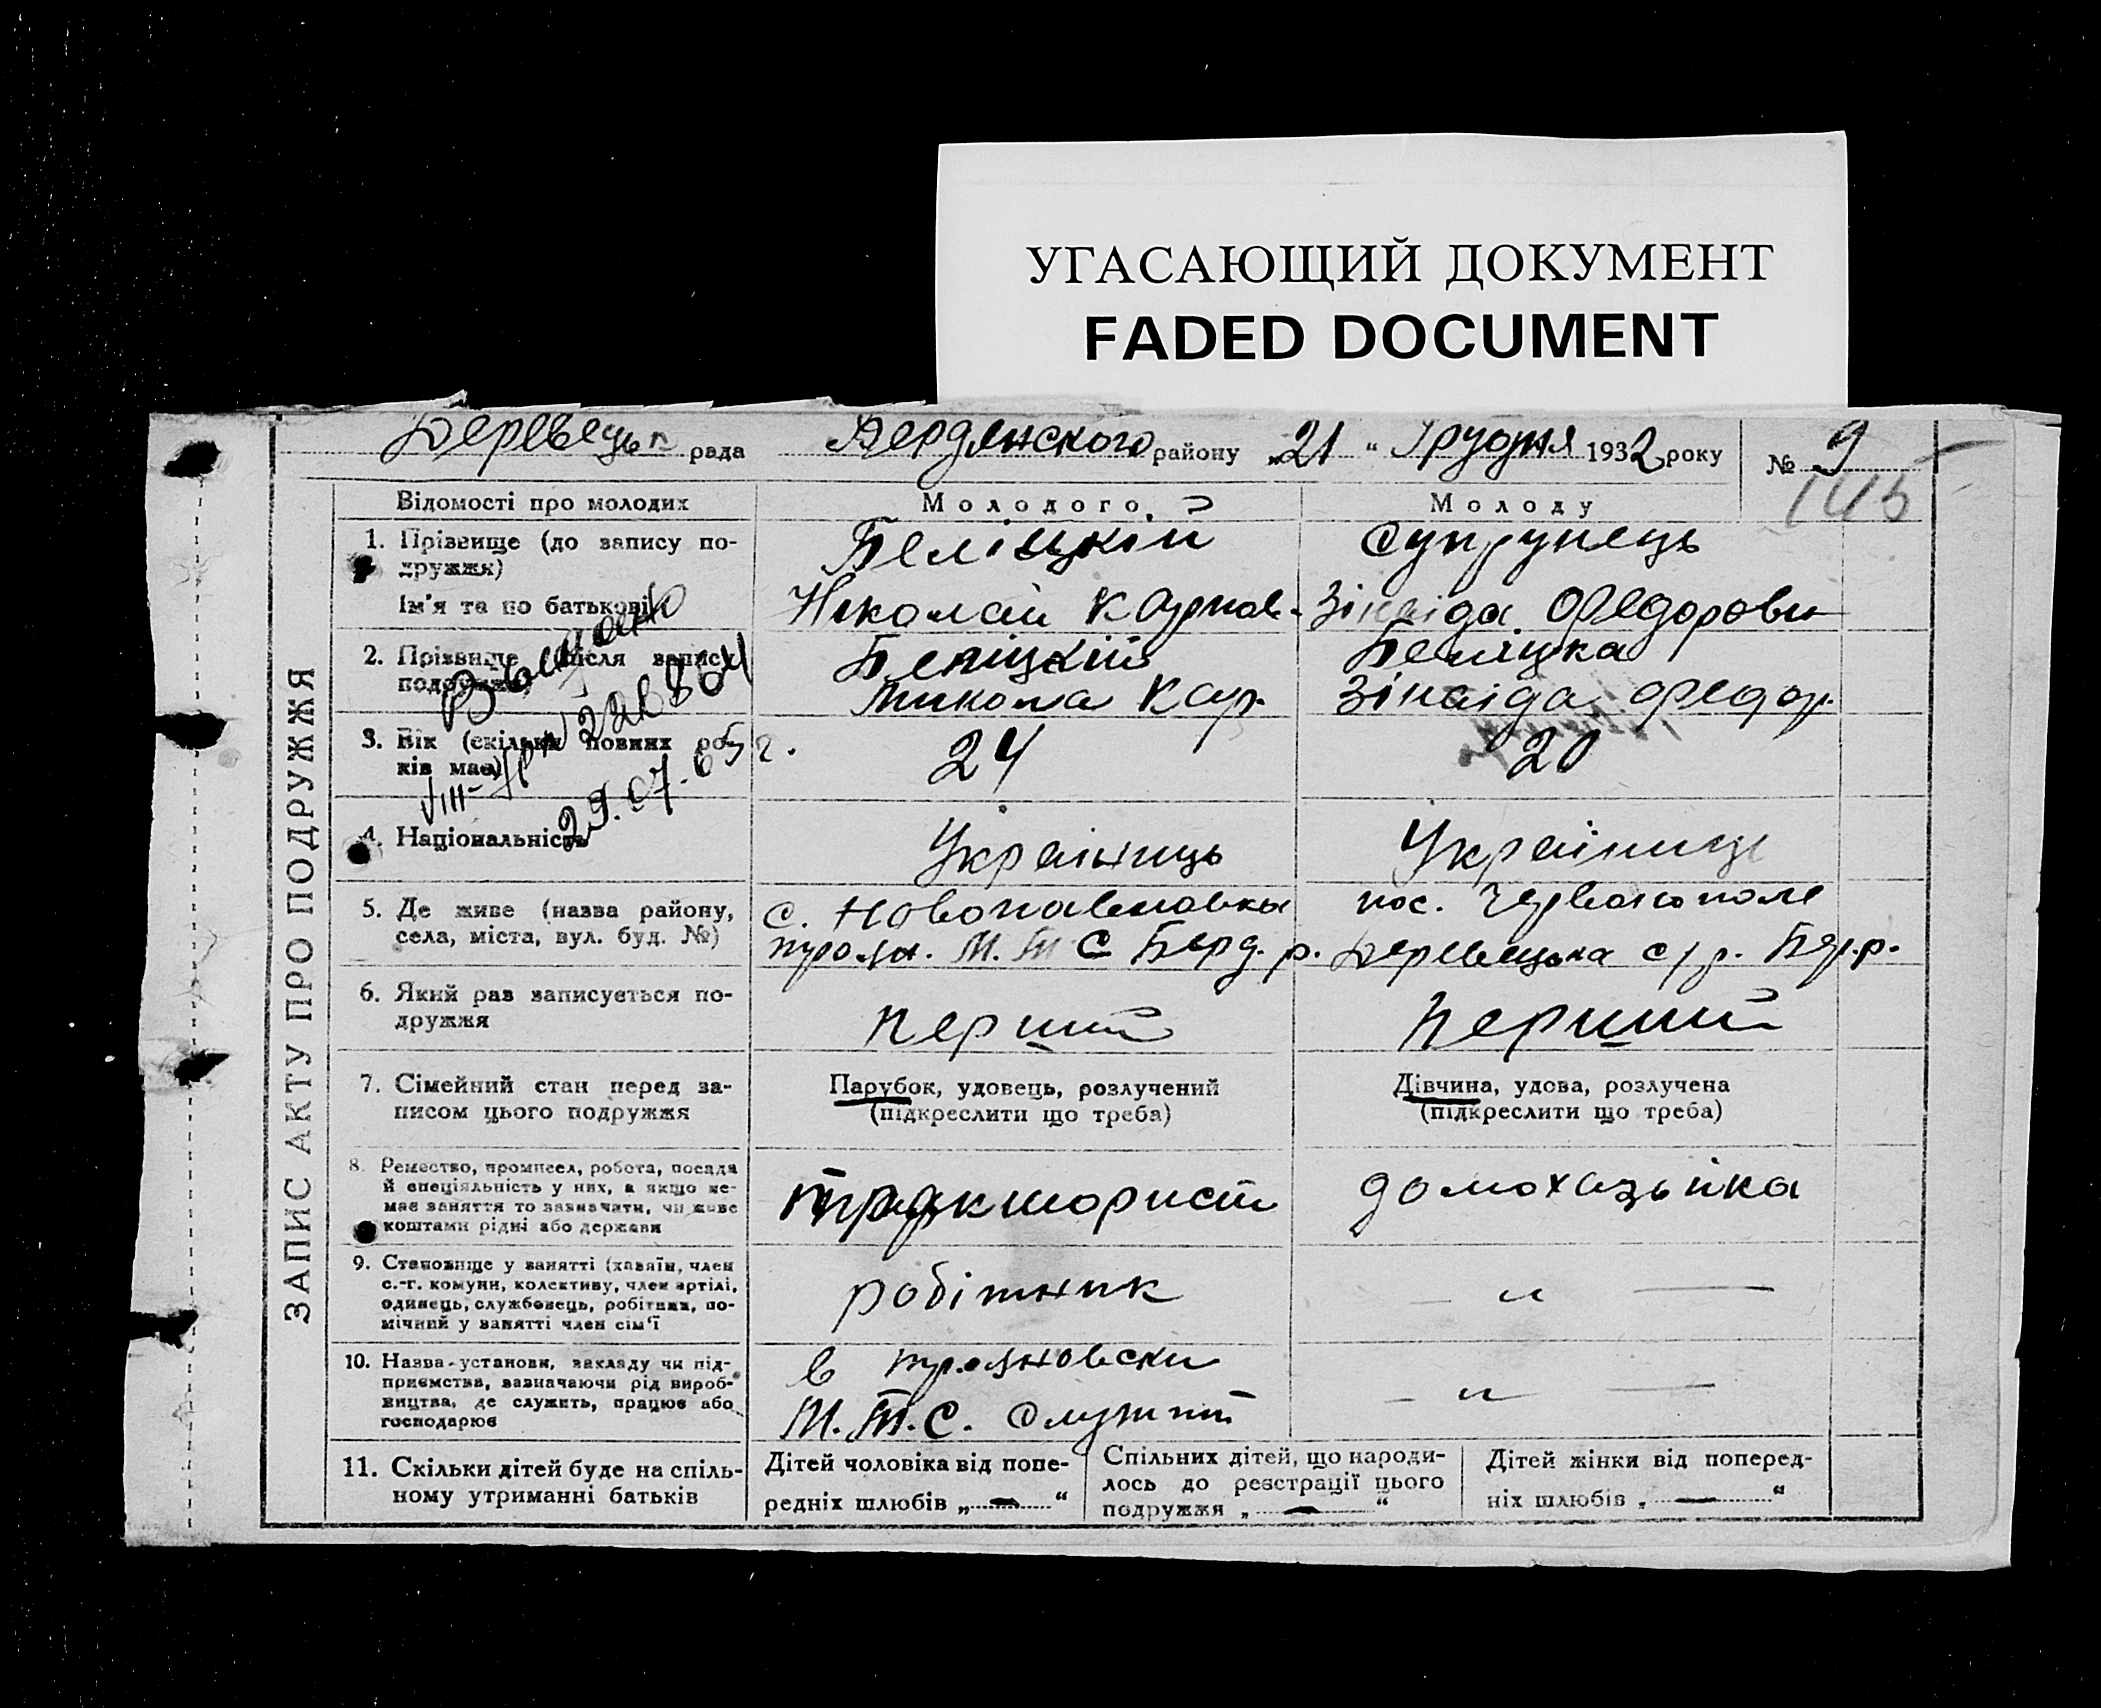 УГАСАЮЩИЙ ДОКУМЕНТ
FADED DOCUMENT
Деревецьк рада Бердянского району „21“ Грудня 1932 року № 9
145
ЗАПИС АКТУ ПРО ПОДРУЖЖЯ
Відомості про молодих Молодого Молоду
1. Прізвище (до запису по-
дружжя)
Беліцкій Супрунець
Ім'я та по батькові
Николай Карпов- Зінаіда Федоровн
2. Прізвище після запису
подружжя
Беліцкій Беліцка
Микола Кар. Зінаіда Федор.
Выдано
VIII-УРN
29.07.65 г.
3. Вік (скільки повних ро-
ків має)
24 20
4. Національність
Україниць Україниці
5. Де живе (назва району,
села, міста, вул. буд. №)
с. Новопавловка пос. Червоно поле
троян. М.Т С Берд. р. Деревецька с/р. Бер.р.
6. Який раз записується по-
дружжя
перший Перший
7. Сімейний стан перед за-
писом цього подружжя
Парубок, удовець, розлучений Дівчина, удова, розлучена
(підкреслити що треба) (підкреслити що треба)
8. Ремество, промисел, робота, посада
й спеціяльність у них, а якщо не-
має заняття то зазначити, чи живе
коштами рідні або держави
тракторист домохазьйка
9. Становище у занятті (хазяїн, член
с.-г. комуни, колективу, член артілі,
одинець, службовець, робітник, по-
мічний у занятті член сім'ї
робітник — „ —
10. Назва установи, закладу чи під-
приємства, зазначаючи рід вироб-
ництва, де служить, працює або
господарює
в трояновски
М.Т.С. Служит — „ —
11. Скільки дітей буде на спіль-
ному утриманні батьків
Дітей чоловіка від попе-
редніх шлюбів „ — “
Спільних дітей, що народи-
лось до реєстрації цього
подружжя „ — “
Дітей жінки від поперед-
ніх шлюбів „ — “